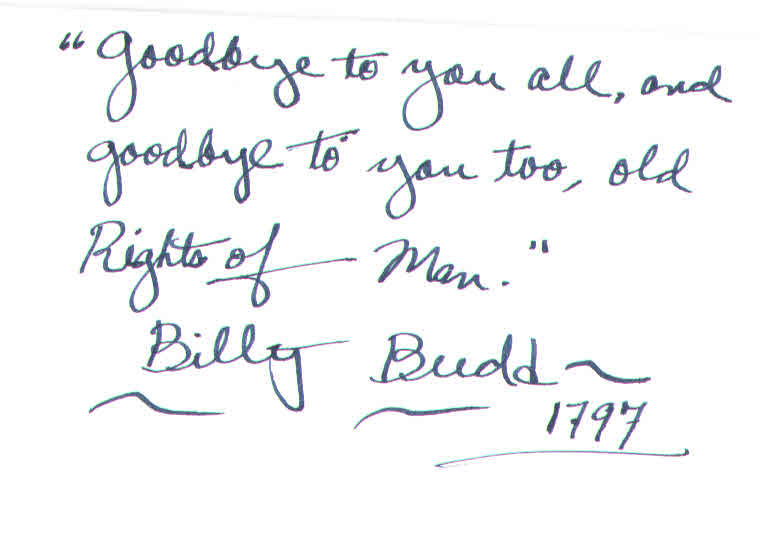 "Goodbye to you all, and
goodbye to you too, old
Rights of Man."
Billy Budd
1797